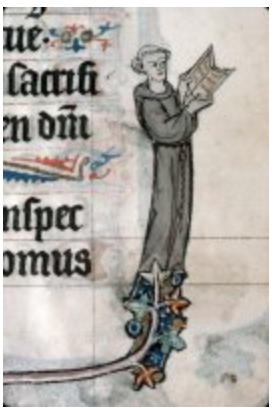 ue.
sacrifi
en dm̄
nspec
omus